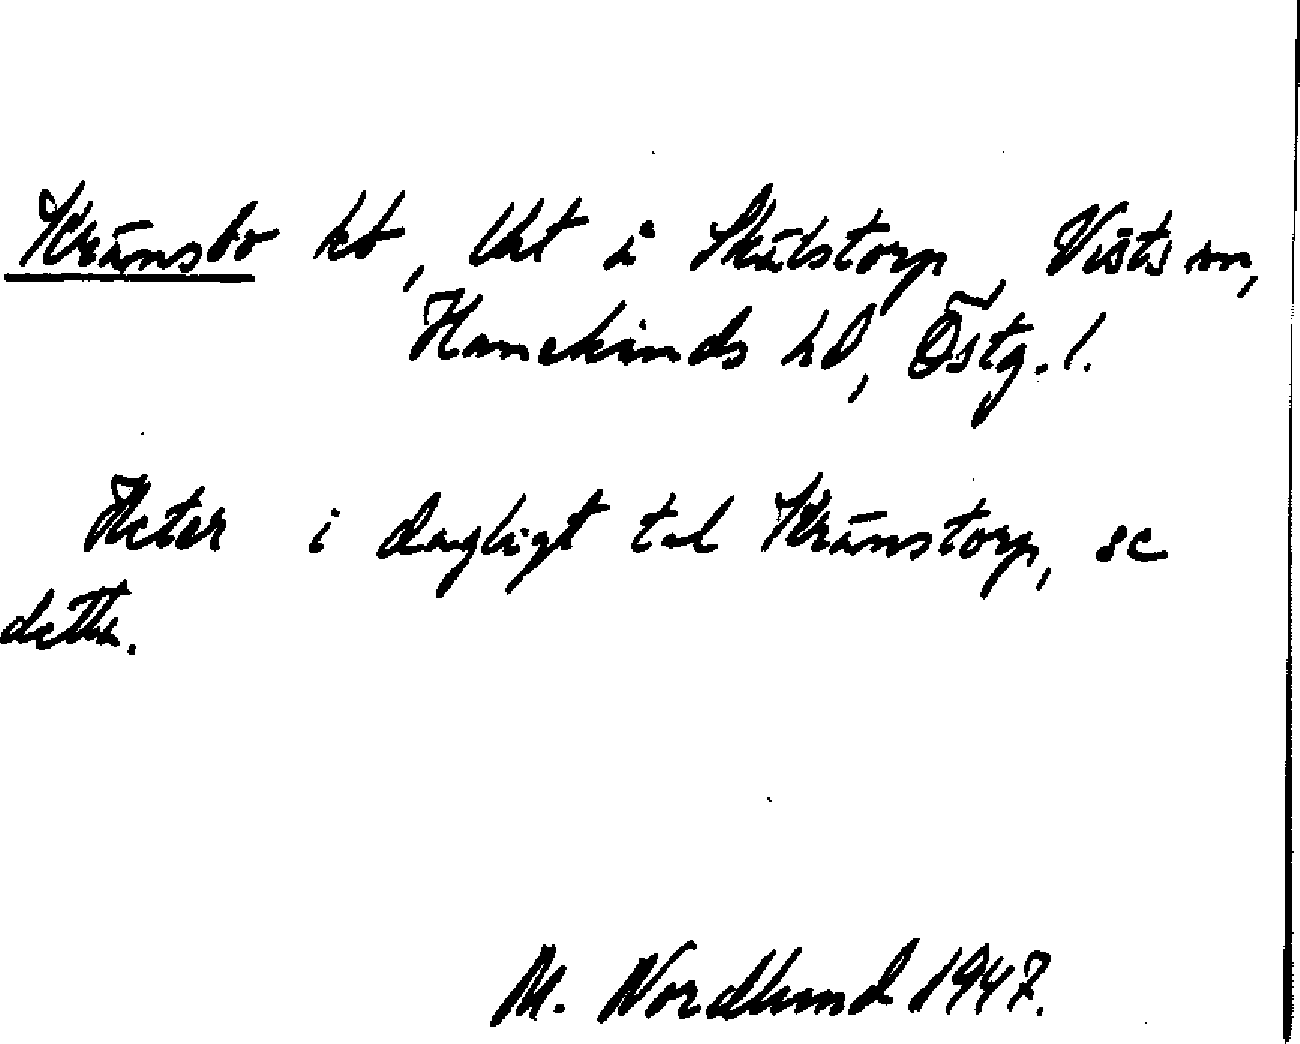 Kränsbo kt, Uht i Skälstorp, Vists sn,
Hanekinds hd, Östg. l.
Heter i dagligt tal Kränstorp, se
detta.
M. Nordlund 1947.